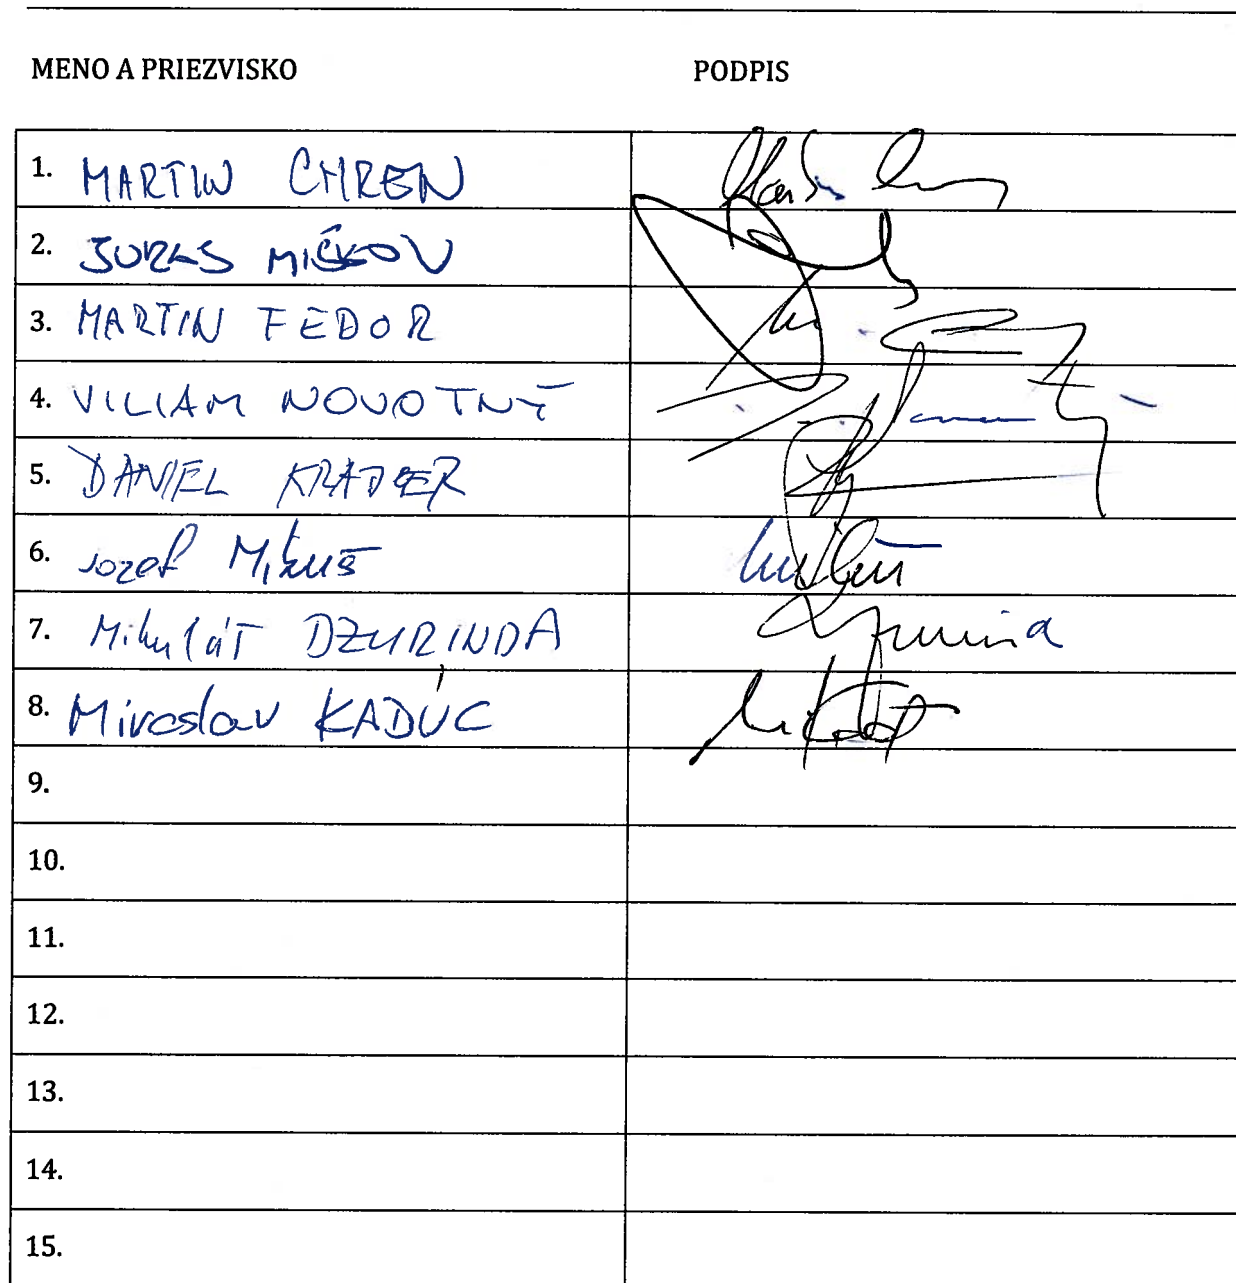 MENO A PRIEZVISKO PODPIS
1. MARTIN CHREN
2. JURAJ MIŠKOV
3. MARTIN FEDOR
4. VILIAM NOVOTNÝ
5. DANIEL KRAJCER
6. Jozef Mikuš
7. Mikuláš DZURINDA
8. Miroslav KADÚC
9.
10.
11.
12.
13.
14.
15.